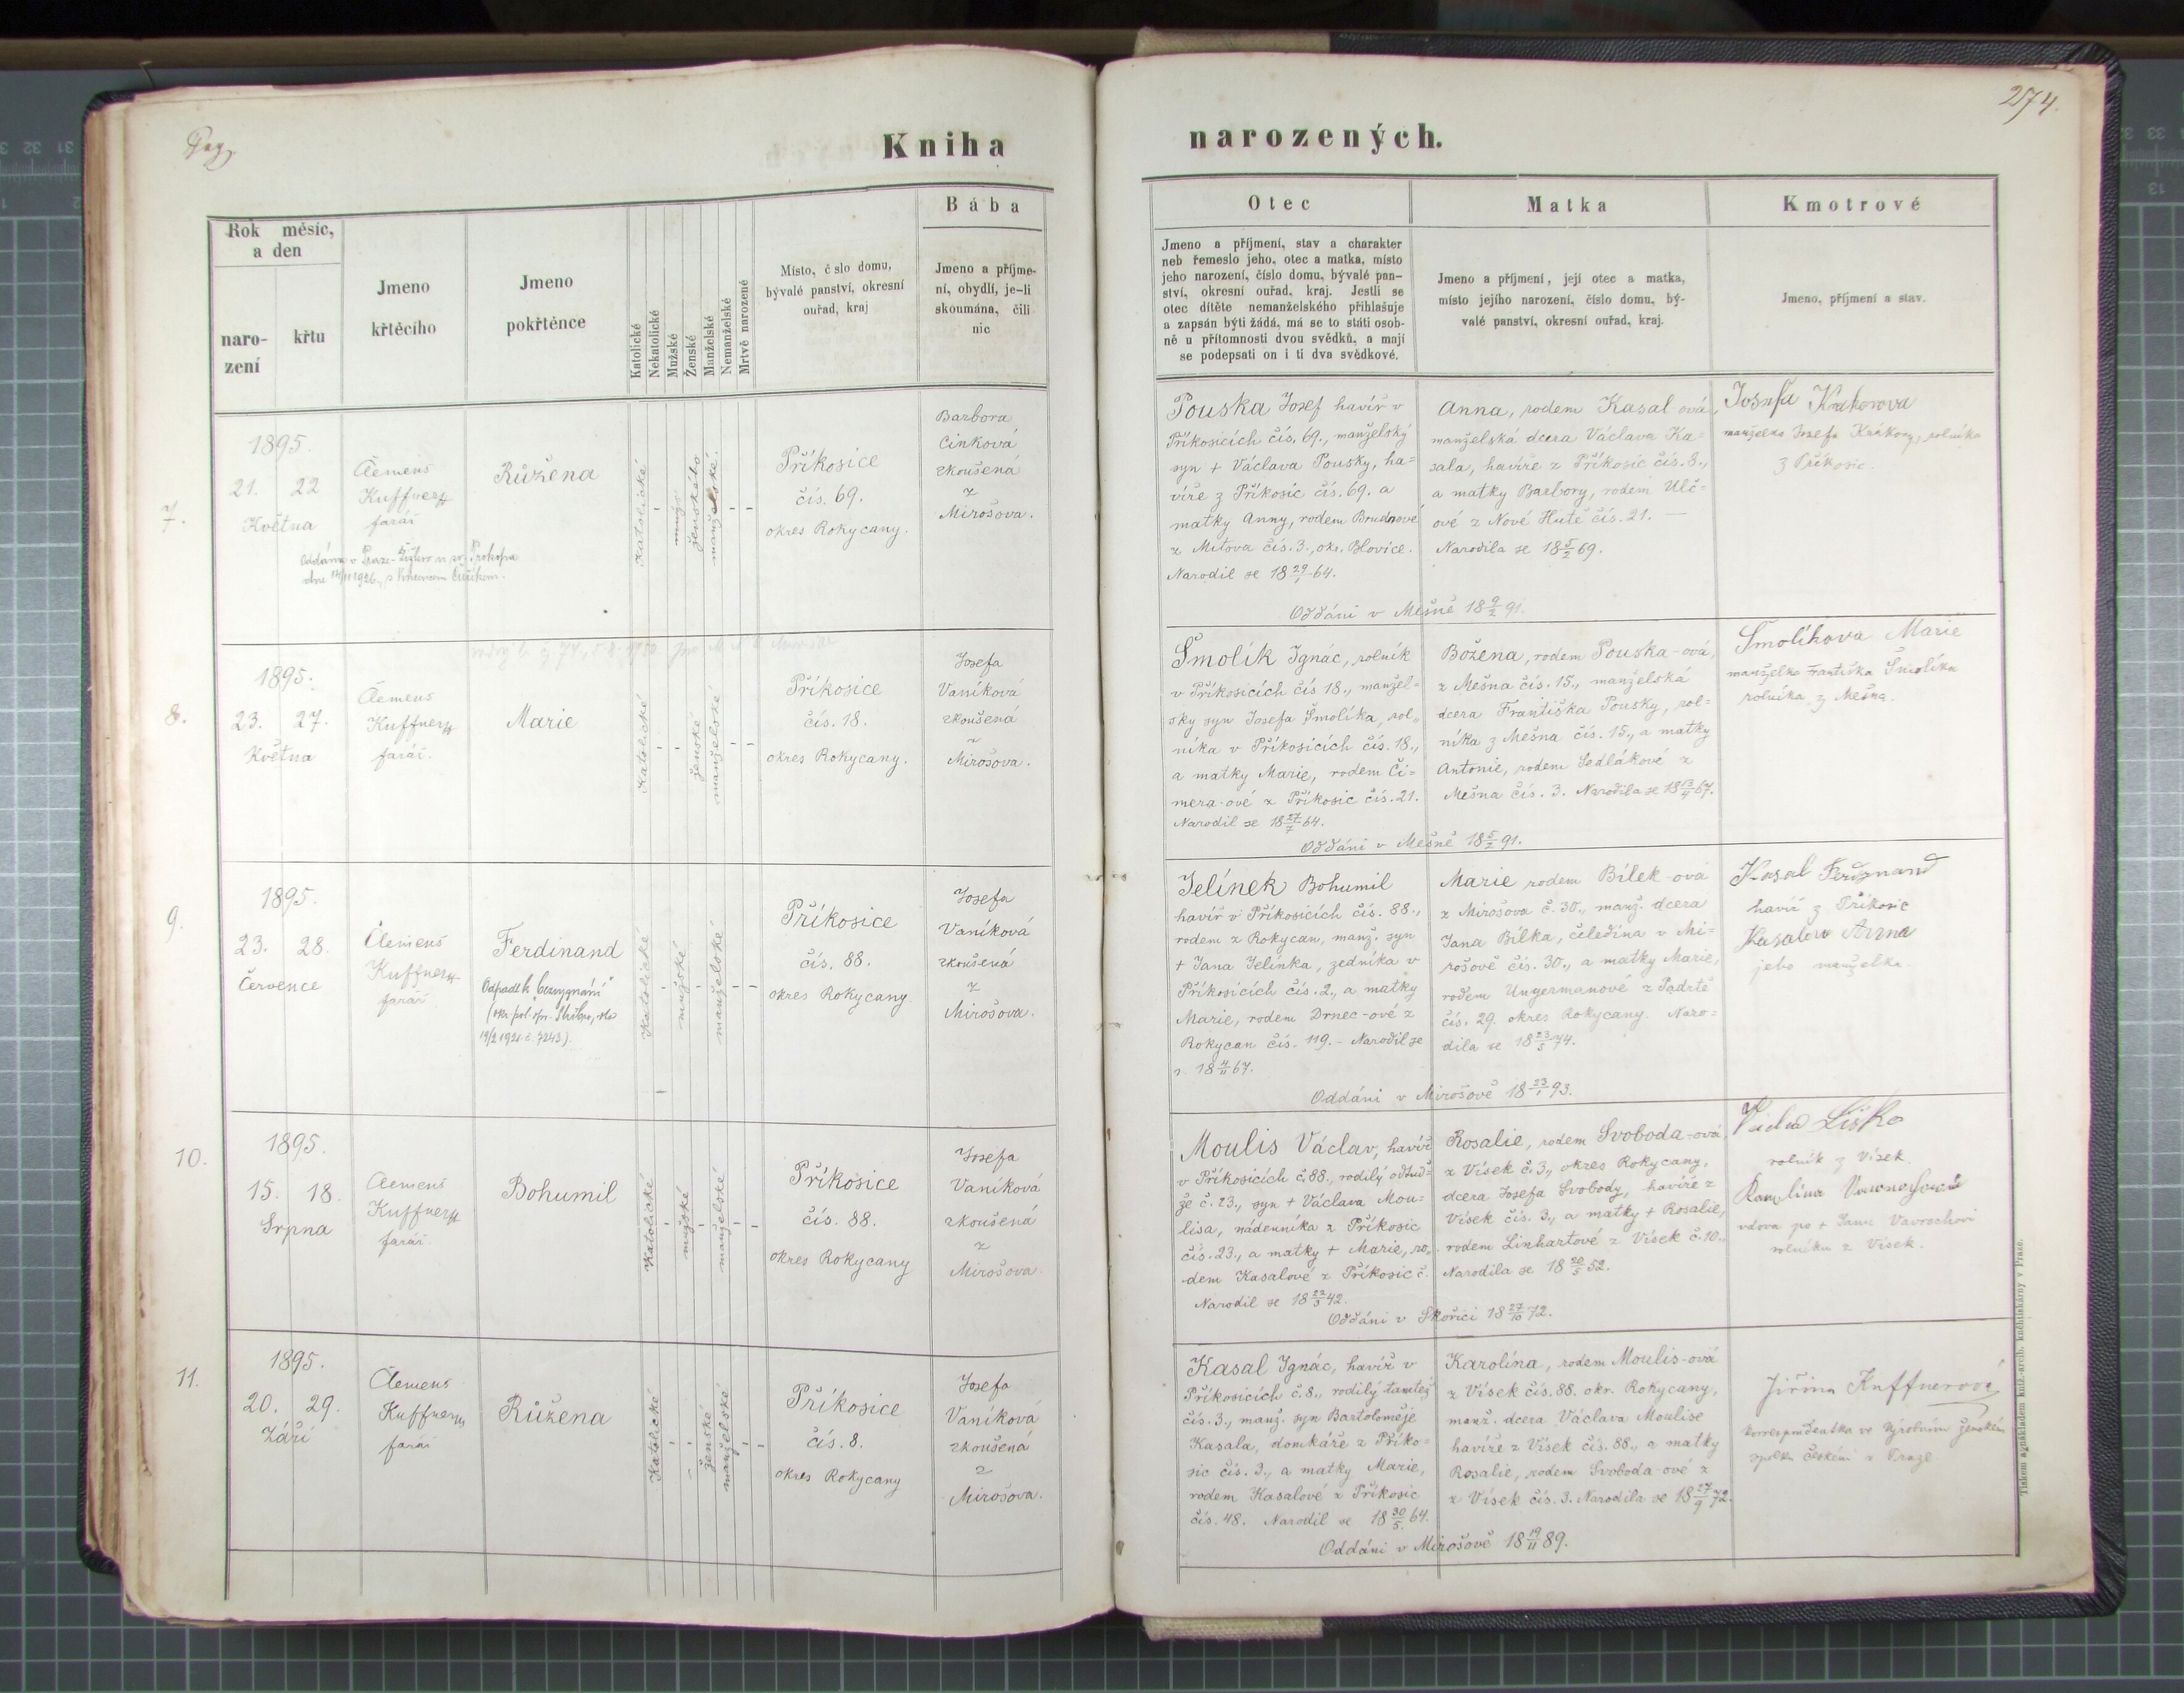 Pag.
Kniha narozených.
274.
Rok měsíc, a den
naro-
zení
křtu
Jmeno
křtěcího
Jmeno
pokřtěnce
Katolické
Nekatolické
Mužské
Ženské
Manželské
Nemanželské
Mrtvě narozené
Místo, č slo domu,
bývalé panství, okresní
ouřad, kraj
Bába
Jmeno a příjme-
ní, obydlí, je-li
skoumána, čili
nic
Otec
Jmeno a příjmení, stav a charakter
neb řemeslo jeho, otec a matka, místo
jeho narození, číslo domu, bývalé pan-
ství, okresní ouřad, kraj. Jestli se
otec dítěte nemanželského přihlašuje
a zapsán býti žádá, má se to státi osob-
ně u přítomnosti dvou svědků, a mají
se podepsati on i ti dva svědkové.
Matka
Jmeno a příjmení, její otec a matka,
místo jejího narození, číslo domu, bý-
valé panství, okresní ouřad, kraj.
Kmotrové
Jmeno, příjmení a stav.
7.
1895.
21. 22
Května
Clemens
Kuffner
farář
Růžena
Katolické
ženského
manželské.
Příkosice
čís. 69.
okres Rokycany.
Barbora
Cinková
zkoušená
z
Mirošova.
Oddána v Praze
dne 14/11 1926
Pouska Josef havíř v
Příkosicích čís. 69., manželský
syn + Václava Pousky, ha=
víře z Příkosic čís. 69. a
matky Anny, rodem Brudnové
z Mítova čís. 3., okr. Blovice.
Narodil se 18 29/1 64.
Anna, rodem Kasal ová,
manželská dcera Václava Ka=
sala, havíře z Příkosic čís. 8.,
a matky Barbory, rodem Ulč=
ové z Nové Hutě čís. 21. —
Narodila se 18 5/2 69.
Oddáni v Mešně 18 9/2 91.
manželka Josefa rolníka
z Příkosic.
8.
1895.
23. 27.
Května
Clemens
Kuffner
farář.
Marie
Katolické
ženské
manželské
Příkosice
čís. 18.
okres Rokycany.
Josefa
Vaníková
zkoušená
z
Mirošova.
Smolík Ignác, rolník
v Příkosicích čís 18., manžel=
sky syn Josefa Smolíka, rol=
níka v Příkosicích čís. 18.,
a matky Marie, rodem Či=
mera-ové z Příkosic čís. 21.
Narodil se 18 27/7 64.
Božena, rodem Pouska-ová,
z Mešna čís. 15., manželská
dcera Františka Pousky, rol=
níka z Mešna čís. 15., a matky
Antonie, rodem Sedlákové z
Mešna čís. 3. Narodila se 18 67.
Oddáni v Mešně 18 5/2 91.
Smolíkova Marie
manželka Františka Smolíka
rolníka z Mešna.
9.
1895.
23. 28.
Července
Clemens
Kuffner
farář
Ferdinand
Odpadl k „bezvyznání"
19/2 1921 č. 7243).
Katolické
mužské
manželské
Příkosice
čís. 88.
okres Rokycany.
Josefa
Vaníková
zkoušená
z
Mirošova.
Jelínek Bohumil
havíř v Příkosicích čís. 88.,
rodem z Rokycan, manž. syn
+ Jana Jelínka, zedníka v
Příkosicích čís. 2., a matky
Marie, rodem Drnec-ové z
Rokycan čís. 119. - Narodil se
r. 18 4/11 67.
Marie rodem Bílek-ová
z Mirošova č. 30., manž. dcera
Jana Bílka, čeledína v Mi=
rošově čís. 30., a matky Marie,
rodem Ungermanové z Padrtě
čís. 29. okres Rokycany. Naro=
dila se 18 23/5 74.
Oddáni v Mirošově 18 23/1 93.
Kasal Ferdynand
havíř z Příkosic
Kasalov Anna
jeho manželka
10.
1895.
15. 18.
Srpna
Clemens
Kuffner
farář.
Bohumil
Katolické
mužské
manželské
Příkosice
čís. 88.
okres Rokycany
Josefa
Vaníková
zkoušená
z
Mirošova.
Moulis Václav, havíř
v Příkosicích č. 88., rodilý odtud=
že č. 23., syn + Václava Mou=
lisa, nádenníka z Příkosic
čís. 23., a matky + Marie, ro=
dem Kasalové z Příkosic č.
Narodil se 18 22/3 42.
Rosalie, rodem Svoboda-ová,
z Vísek č. 3., okres Rokycany,
dcera Josefa Svobody, havíře z
Vísek čís. 3., a matky + Rosalie,
rodem Linhartové z Vísek č. 10.,
Narodila se 18 20/5 52.
Oddáni v Skořici 18 27/10 72.
rolník z Vísek
vdova po + Janu
rolníku z Vísek.
11.
1895.
20. 29.
Září
Clemens
Kuffner
farář
Růžena
Katolické
ženské
manželské
Příkosice
čís. 8.
okres Rokycany
Josefa
Vaníková
zkoušená
z
Mirošova.
Kasal Ignác, havíř v
Příkosicích č. 8., rodilý tamtéž
čís. 3., manž. syn Bartoloměje
Kasala, domkáře z Příko=
sic čís. 3., a matky Marie,
rodem Kasalové z Příkosic
čís. 48. Narodil se 18 30/5 64.
Karolína, rodem Moulis-ová
z Vísek čís. 88. okr. Rokycany,
manž. dcera Václava Moulise
havíře z Vísek čís. 88., a matky
Rosalie, rodem Svoboda-ové z
z Vísek čís. 3. Narodila se 18 27/9 72.
Oddáni v Mirošově 18 19/11 89.
Jiřina Kuffnerová
korrespondentka ve Výrobním ženském
spolku českém v Praze